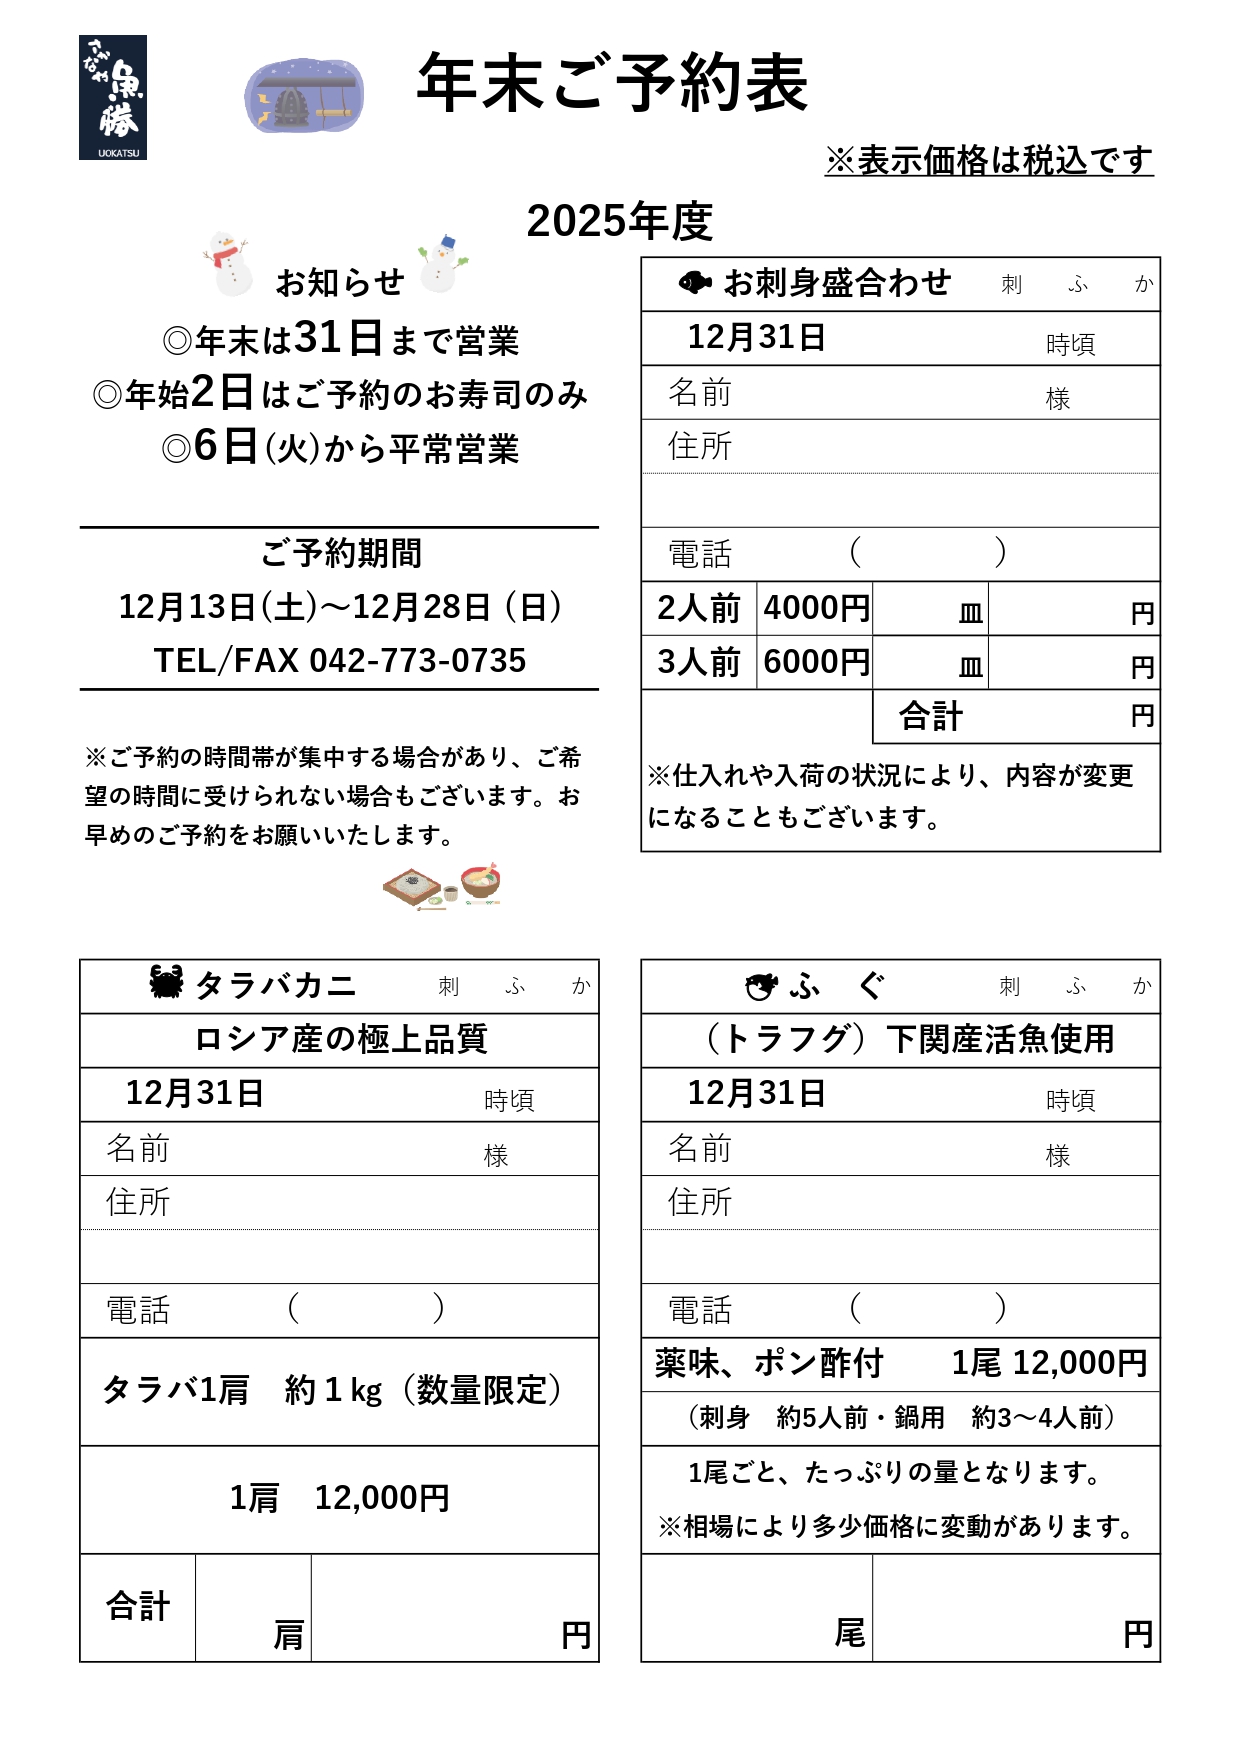 さかなや
魚勝
UOKATSU
年末ご予約表
※表示価格は税込です
2025年度
お知らせ
◎年末は31日まで営業
◎年始2日はご予約のお寿司のみ
◎6日(火)から平常営業
ご予約期間
12月13日(土)～12月28日（日）
TEL/FAX 042-773-0735
※ご予約の時間帯が集中する場合があり、ご希
望の時間に受けられない場合もございます。お
早めのご予約をお願いいたします。
お刺身盛合わせ 刺 ふ か
12月31日 時頃
名前 様
住所
電話 （ ）
2人前 4000円 皿 円
3人前 6000円 皿 円
合計 円
※仕入れや入荷の状況により、内容が変更
になることもございます。
タラバカニ 刺 ふ か
ロシア産の極上品質
12月31日 時頃
名前 様
住所
電話 （ ）
タラバ1肩 約１kg（数量限定）
1肩 12,000円
合計 肩 円
ふ ぐ 刺 ふ か
（トラフグ）下関産活魚使用
12月31日 時頃
名前 様
住所
電話 （ ）
薬味、ポン酢付 1尾 12,000円
（刺身 約5人前・鍋用 約3～4人前）
1尾ごと、たっぷりの量となります。
※相場により多少価格に変動があります。
尾 円